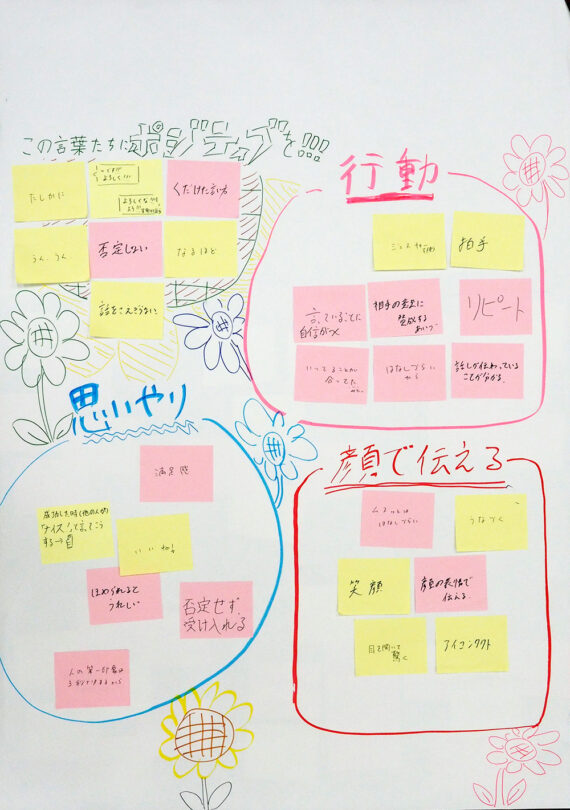 この言葉たちにポジティブを...
たしかに
よろしく!!!
くだけた言方
うん、うん
否定しない
なるほど
話をこえさえぎらない
行動
ジェスチャー
拍手
言っていることに
自信がつく
相手の意見に
賛成する
あいづち
リピート
いってることが
合ってた
はなしづらい
から
話しが伝わっている
ことが分かる。
思いやり
満足感
成功した時(他の人が)
ナイス!って言ってこう
する→
いいね!
ほめられると
うれしい
否定せず
受け入れる
人の第一印象は
顔で伝える
ムスッとは
はなしづらい
うなづく
笑顔
顔の表情で
伝える
目を開いて
驚く
アイコンタクト